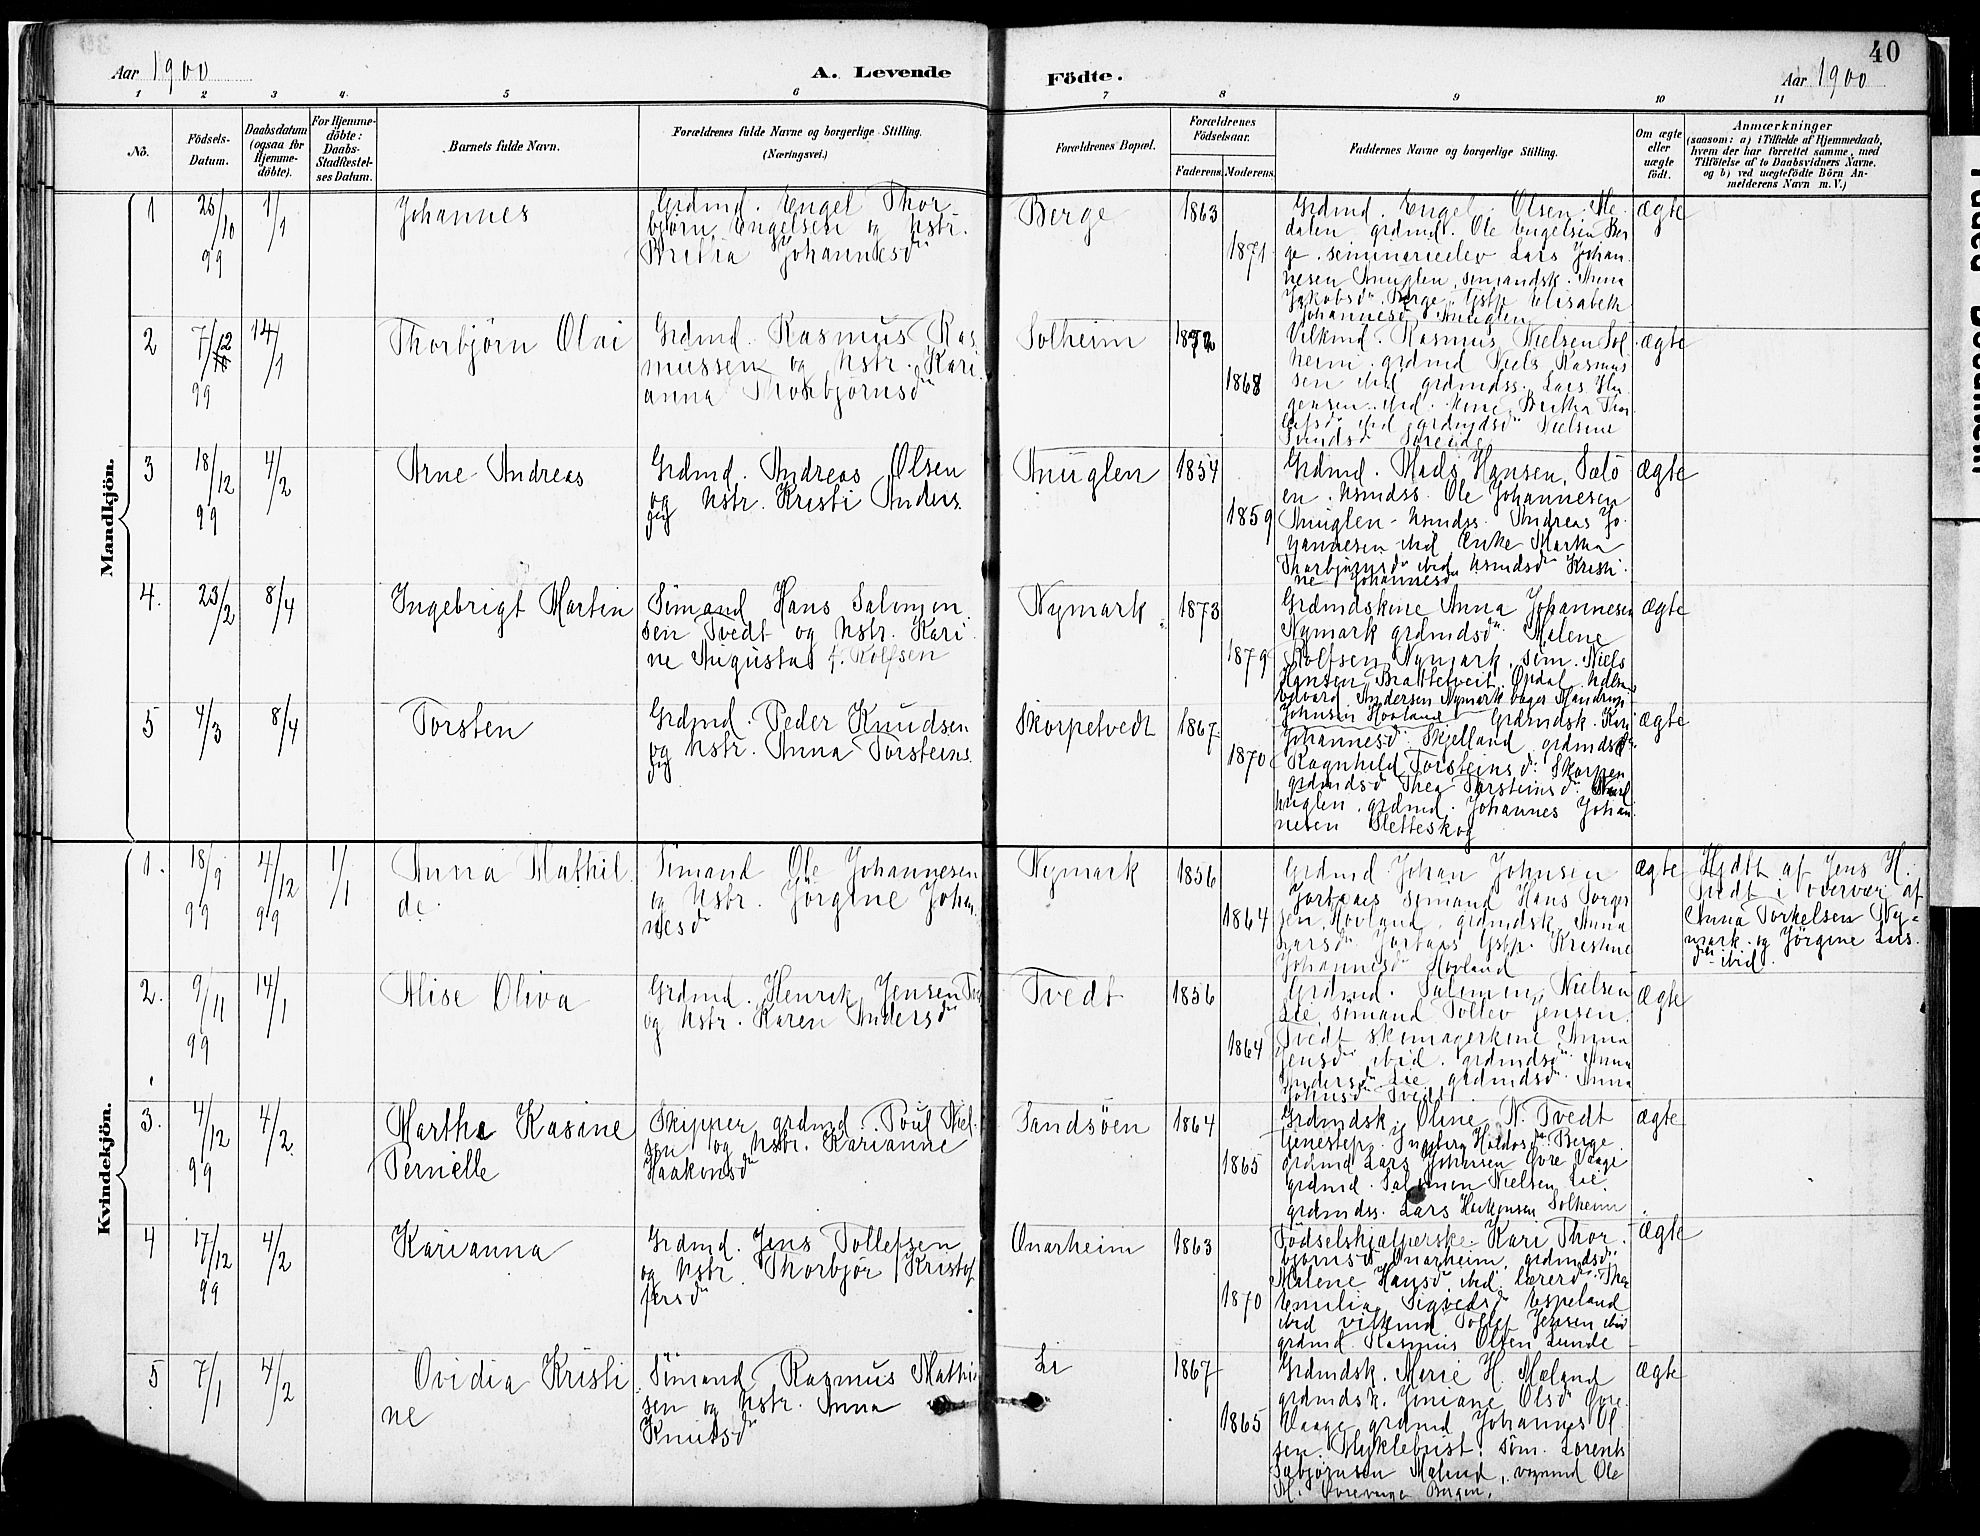 40
Aar 1900
A. Levende
Födte.
Aar 1900
1 2 3 4 5 6 7 8 9 10 11
No.
Födsels-
Datum.
Daabsdatum
(ogsaa for
Hjemme-
döbte).
For Hjemme-
döbte:
Daabs-
Stadfæstel-
ses Datum.
Barnets fulde Navn.
Forældrenes fulde Navne og borgerlige Stilling.
(Næringsvei.)
Forældrenes Bopæl.
Forældrenes
Födselsaar.
Faderens. Moderens.
Faddernes Navne og borgerlige Stilling.
Om ægte
eller
uægte
födt.
Anmærkninger
(saasom: a) i Tilfælde af Hjemmedaab,
hvem der har forrettet samme, med
Tilföielse af to Daabsvidners Navne,
og b) ved uægtefödte Börn An-
melderens Navn m. V.)
Mandkjön.
1 25/10 99 1/1 Johannes
Grdmd. Engel Thor
björn Engelsen og Hstr.
Britha Johannesdr
Berge 1863 1871
Grdmd. Engel Olsen Me
dalen grdmd. Ole Engelsen Ber
ge. seminarieelev Lars Johan
nesen Anuglen, sömandsk. Anna
Jakobsdr. Berge. Gstp Elisabeth
Johannesdr Anuglen
ægte
2 7/12 99 14/1 Thorbjörn Olai
Grdmd. Rasmus Ras
mussen og Hstr. Kari
anna Thorbjörnsdr
Solheim 1872 1868
Vilkmd. Rasmus Nielsen Sol
heim. grdmd Niels Rasmus
sen ibid grdmdss. Lars
ibid. Kone Britha Thor
ibid grdmdsdr Nielsine
ægte
3 18/12 99 4/2 Arne Andreas
Grdmd. Andreas Olsen
og Hstr. Kristi Anders
dtr
Anuglen 1854 1859
Grdmd. Mads Hansen, Sætö
en. Hsmdss. Ole Johannesen
Anuglen. Hsmdss. Andreas Jo
hannesen ibid Enke Martha
Thorbjörnsdr ibid Hsmdsdr Kristi
ne Johannesdr
ægte
4. 23/2 8/4 Ingebrigt Martin
Sömand Hans Salomon
sen Tvedt og Hstr. Kari
ne Augusta f. Rolfsen
Nymark 1873 1879
Grdmdskone Anna Johannesen
Nymark grdmdsdr. Malene
Rolfsen Nymark, söm. Niels
Hansen Brattetveit, Opdal
Edvard Andersen Nymark bager Mandrup
Johnsen Hovland
ægte
5 4/3 8/4 Torsten
Grdmd. Peder Knudsen
og Hstr. Anna Torsteins
dtr
Skorpetvedt 1867 1870
Grdmdsk. Kari
Johannesdr. Skjelland, grdmdsdr.
Ragnhild Torsteinsdr. Skorpen
grdmdsdr Thea Torsteinsdr.
grdmd. Johannes Johan
nesen Sletteskog
ægte
Kvindekjön.
1. 18/9 99 4/12 99 1/1 Anna Mathil
de
Sömand Ole Johannesen
og Hstr. Jörgine Johan
nesdr
Nymark 1856 1864
Grdmd Johan Johnsen
Jortaas Sömand Hans Torger
sen, Hovland, grdmdsk Anna
Larsdr Jortaas Gstp. Kristine
Johannesdr Hovland
ægte
Hjdbt af Jens H.
Tvedt i overvær af
Anna Torkelsen Ny-
mark og Jörgine Lars
dtr ibid.
2. 9/11 99 14/1 Alise Oliva
Grdmd. Henrik Jensen
og Hstr. Karen Andersdr
Tvedt 1856 1864
Grdmd. Salomon Nielsen
Lie sömand Tollev Jensen
Tvedt skomagerkone Anna
Jensdr ibid. grdmdsdr Anna
Andersdr Lie grdmdsdr. Anna
Johnsdr Tvedt
ægte
3. 4/12 99 4/2 Martha Kasine
Pernielle
Skipper grdmd. Poul Niel-
sen og Hstr. Karianne
Haakonsdr
Sandsöen 1864 1865
Grdmdsk. Oline N. Tvedt
tjenestepg. Ingeborg Haldosdr Berge
grdmd Lars Johnsen Övre Vaage
grdmd. Salomon Nielsen Lie.
grdmdss. Lars Haakonsen Solheim
ægte
4 17/12 99 4/2 Karianna
Grdmd. Jens Tollefsen
og Hstr. Thorbjör Kristof
fersdr
Onarheim 1863 1870
Födselshjælperske Kari Thor
björnsdr Onarheim, grdmdsdr.
Malene Hansdr ibid. lærerdr. Thea
Emilie Sigvedsdr Espeland
ibid vilkmd Tollef Jensen ibid
grdmd. Rasmus Olsen Lunde
ægte
5 7/1 4/2 Ovidia Kristi
ne
Sömand Rasmus Mathi
sen og Hstr. Anna
Knutsdr
Li 1867 1865
Grdmdsk. Marie H. Mæland
grdmdsk. Jeniane Olsdr Övre
Vaage grdmd Johannes Ol
sen, Myklebust. söm. Lorents
Mæland, Ole
M. Övrevaage Bergen.
ægte